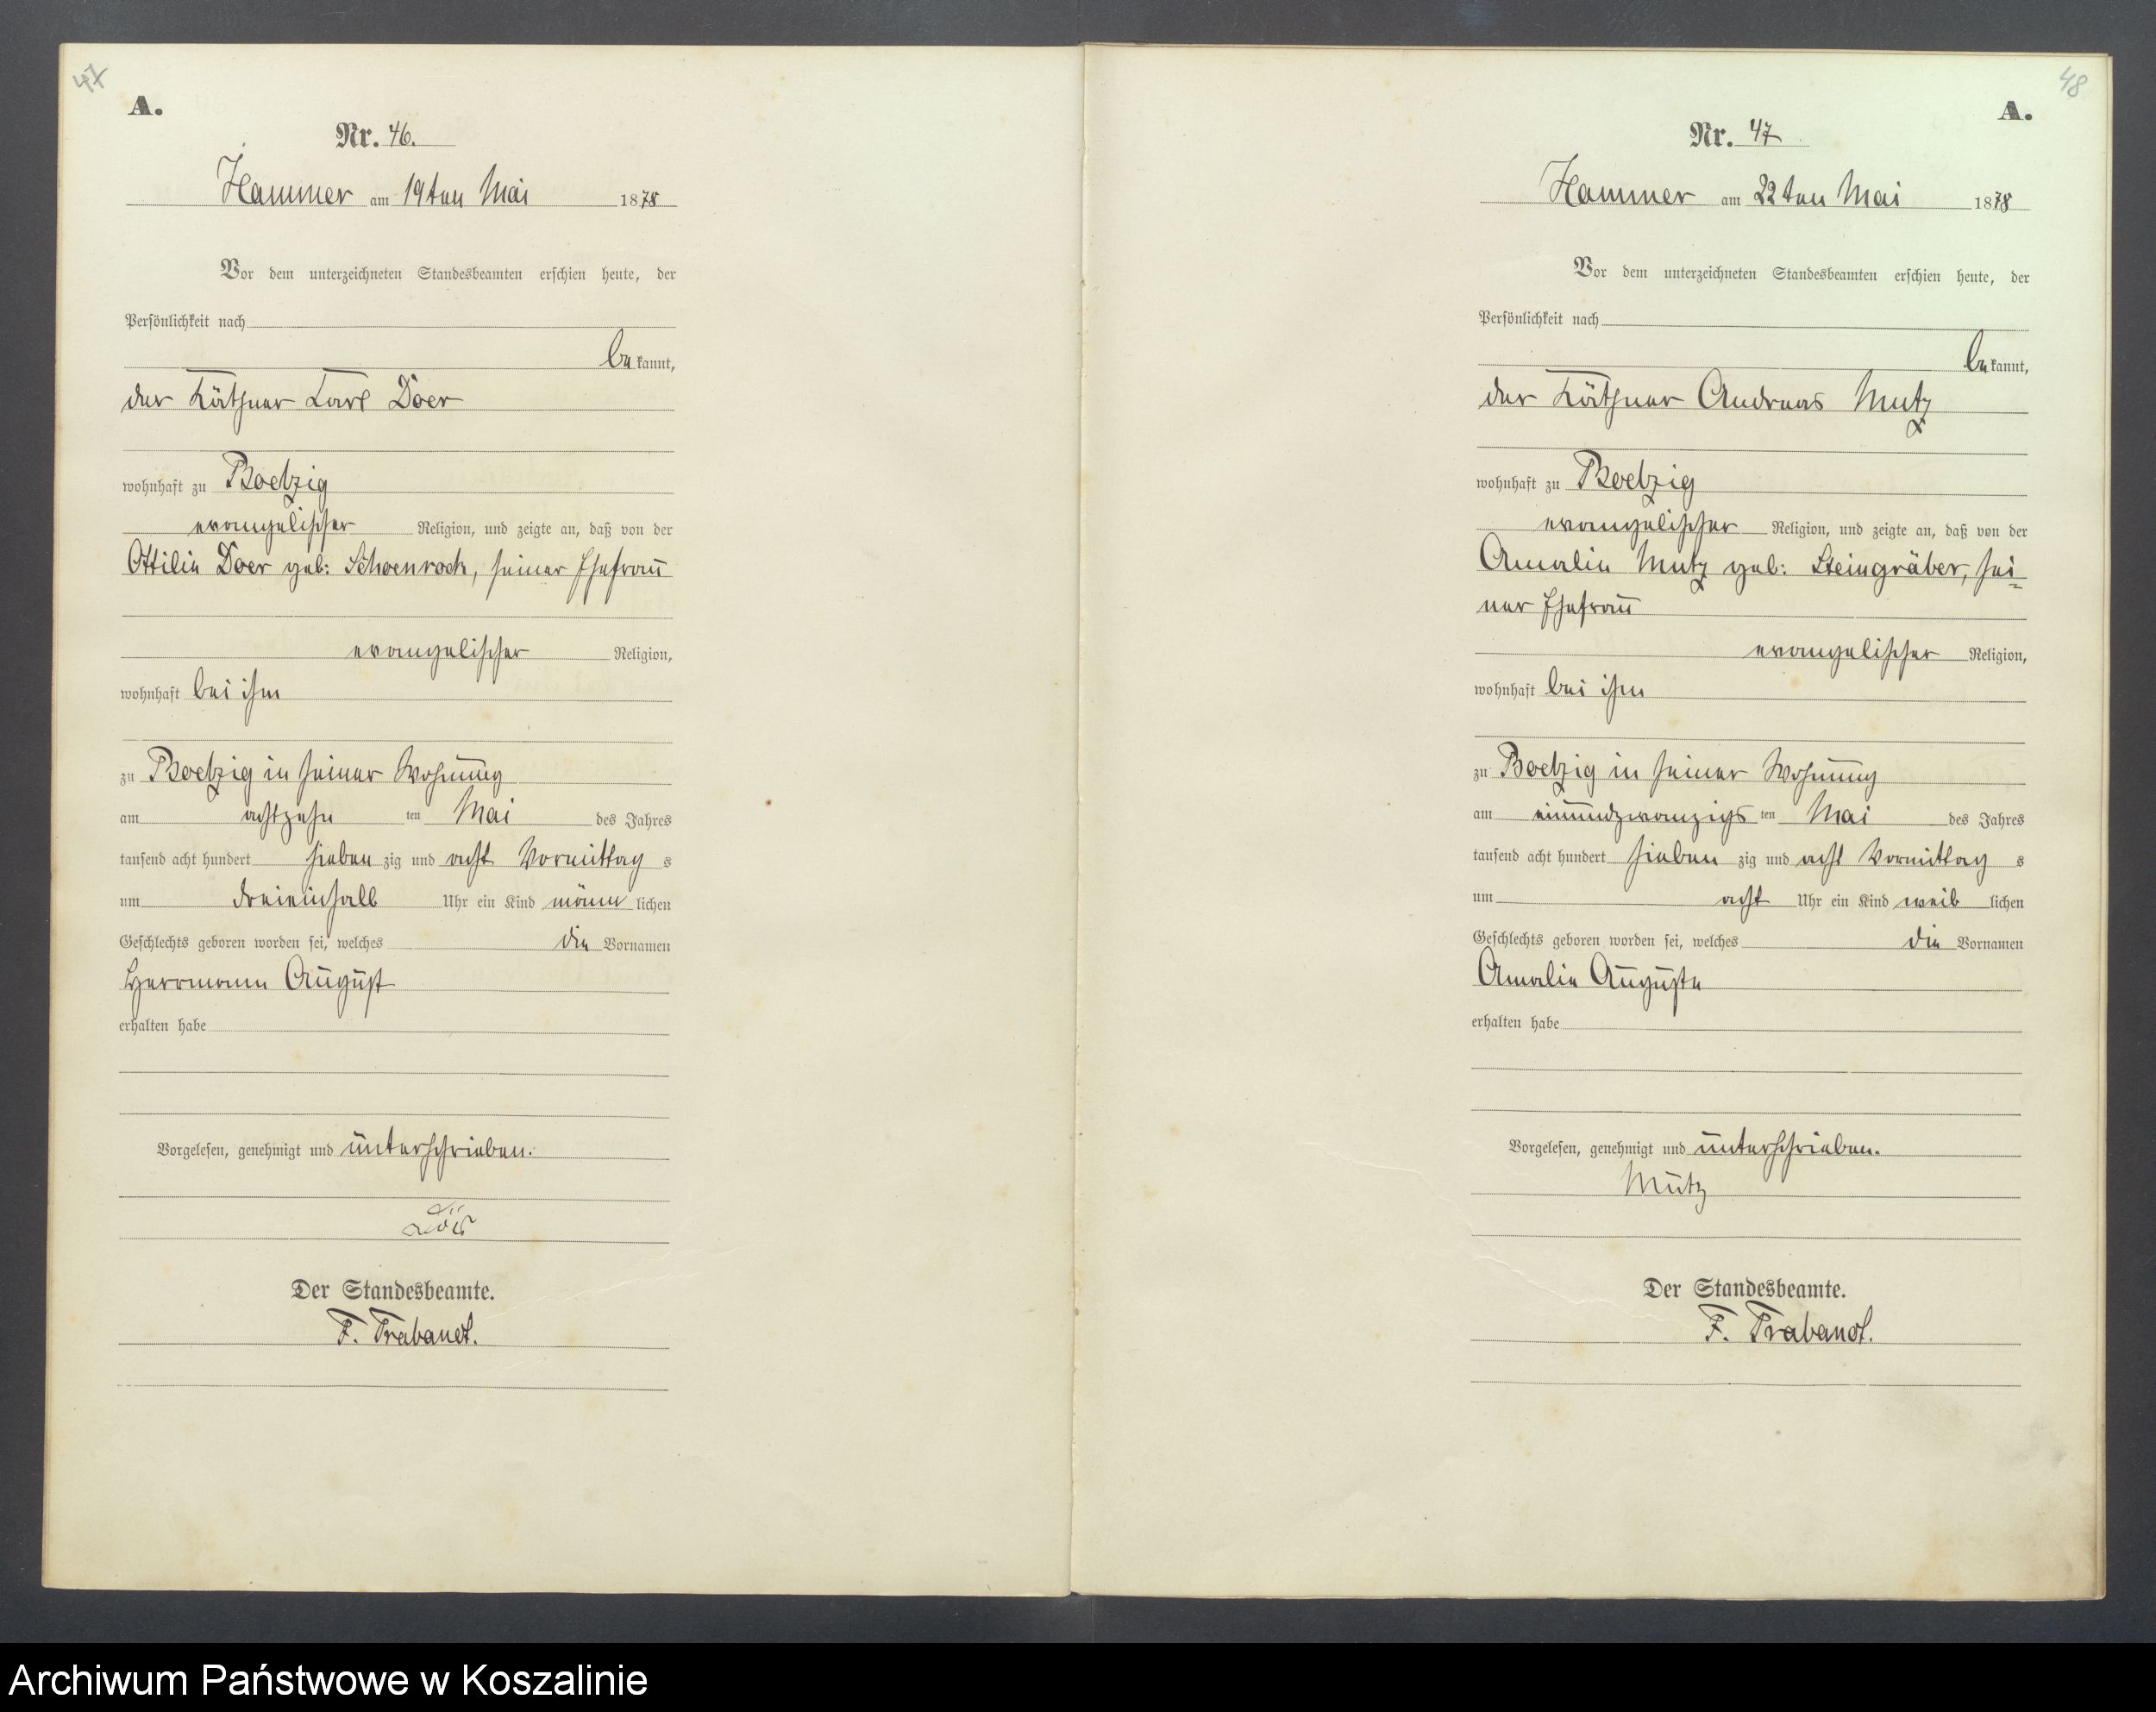 47
A.
Nr. 46.
Hammer am 19ten Mai 1878
Vor dem unterzeichneten Standesbeamten erschien heute, der
Persönlichkeit nach
bekannt,
der Käthner Carl Doer
wohnhaft zu Boetzig
evangelischer Religion, und zeigte an, daß von der
Ottilie Doer geb: Schoenrock, seiner Ehefrau
evangelischer Religion,
wohnhaft bei ihm
zu Boetzig in seiner Wohnung
am achtzehn ten Mai des Jahres
tausend acht hundert sieben zig und acht Vormittag s
um dreieinhalb Uhr ein Kind männ lichen
Geschlechts geboren worden sei, welches die Vornamen
Herrmann August
erhalten habe
Vorgelesen, genehmigt und unterschrieben.
Der Standesbeamte.
F. Trabandt.
48
A.
Nr. 47
Hammer am 22ten Mai 1878
Vor dem unterzeichneten Standesbeamten erschien heute, der
Persönlichkeit nach
bekannt,
der Käthner Andreas Mutz
wohnhaft zu Boetzig
evangelischer Religion, und zeigte an, daß von der
Amalie Mutz geb: Steingräber, sei=
ner Ehefrau
evangelischer Religion,
wohnhaft bei ihm
zu Boetzig in seiner Wohnung
am einundzwanzigs ten Mai des Jahres
tausend acht hundert sieben zig und acht Vormittag s
um acht Uhr ein Kind weib lichen
Geschlechts geboren worden sei, welches die Vornamen
Amalie Auguste
erhalten habe
Vorgelesen, genehmigt und unterschrieben.
Mutz
Der Standesbeamte.
F. Trabandt.
Archiwum Państwowe w Koszalinie